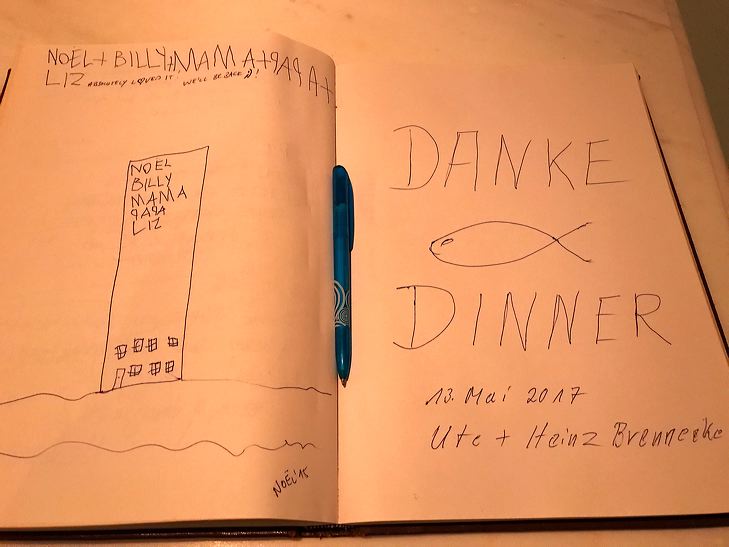 NOËL + BILLY + MAMA + PAPA +
LIZ ABSOLUTELY LOVED IT! WE'LL BE BACK!
NOEL
BILLY
MAMA
PAPA
LIZ
NOËL '15
DANKE
DINNER
13. Mai 2017
Ute + Heinz Brennecke